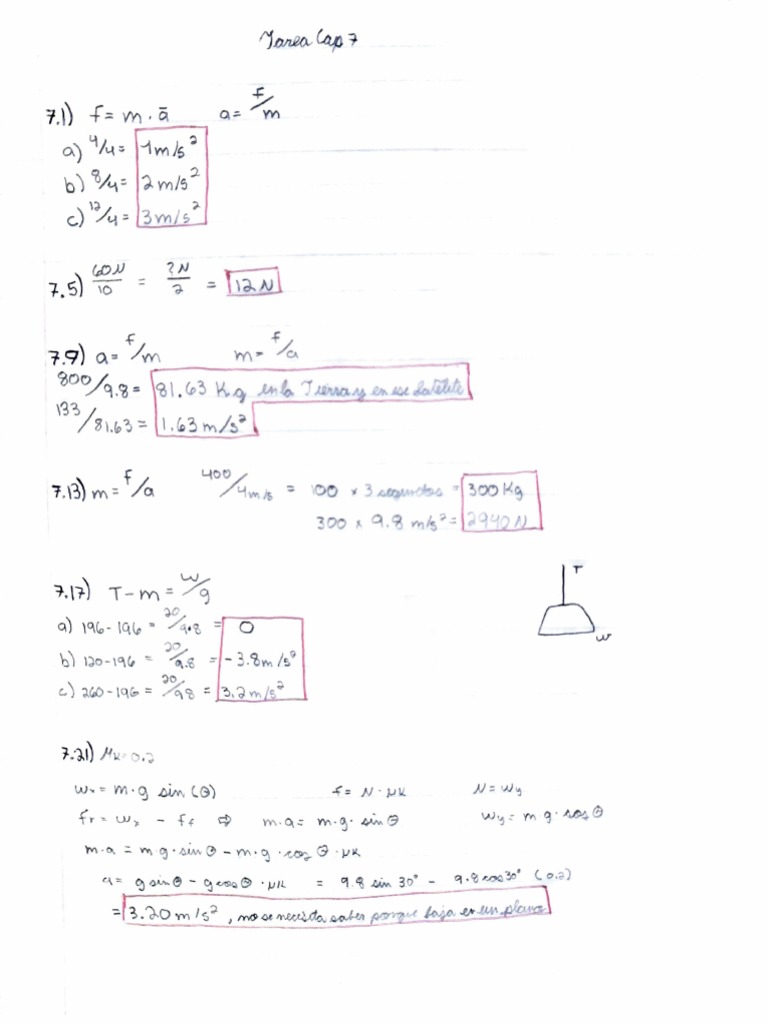 Tarea Cap 7
7.1) f = m · ā     a = f/m
a) 4/4 = 1 m/s²
b) 8/4 = 2 m/s²
c) 12/4 = 3 m/s²
7.5) 60N/10 = ?N/2 = 12 N
7.9) a = f/m     m = f/a
800/9.8 = 81.63 Kg en la Tierra y en ese satélite
133/81.63 = 1.63 m/s²
7.13) m = f/a     400/4m/s = 100 x 3 segundos = 300 Kg
300 x 9.8 m/s² = 2940 N
7.17) T - m = w/g
T
a) 196 - 196 = 20/9.8 = 0
w
b) 120 - 196 = 20/9.8 = -3.8 m/s²
c) 260 - 196 = 20/98 = 3.2 m/s²
7.21) μk = 0.2
wx = m · g sin (θ)     f = N · μk     N = wy
fr = wx - ff ⇨ m·a = m·g· sin θ     wy = m g · cos θ
m·a = m g · sin θ - m·g · cos θ · μk
a = g sin θ - g cos θ · μk = 9.8 sin 30° - 9.8 cos 30° (0.2)
= 3.20 m/s², no se necesita saber porque baja en un plano